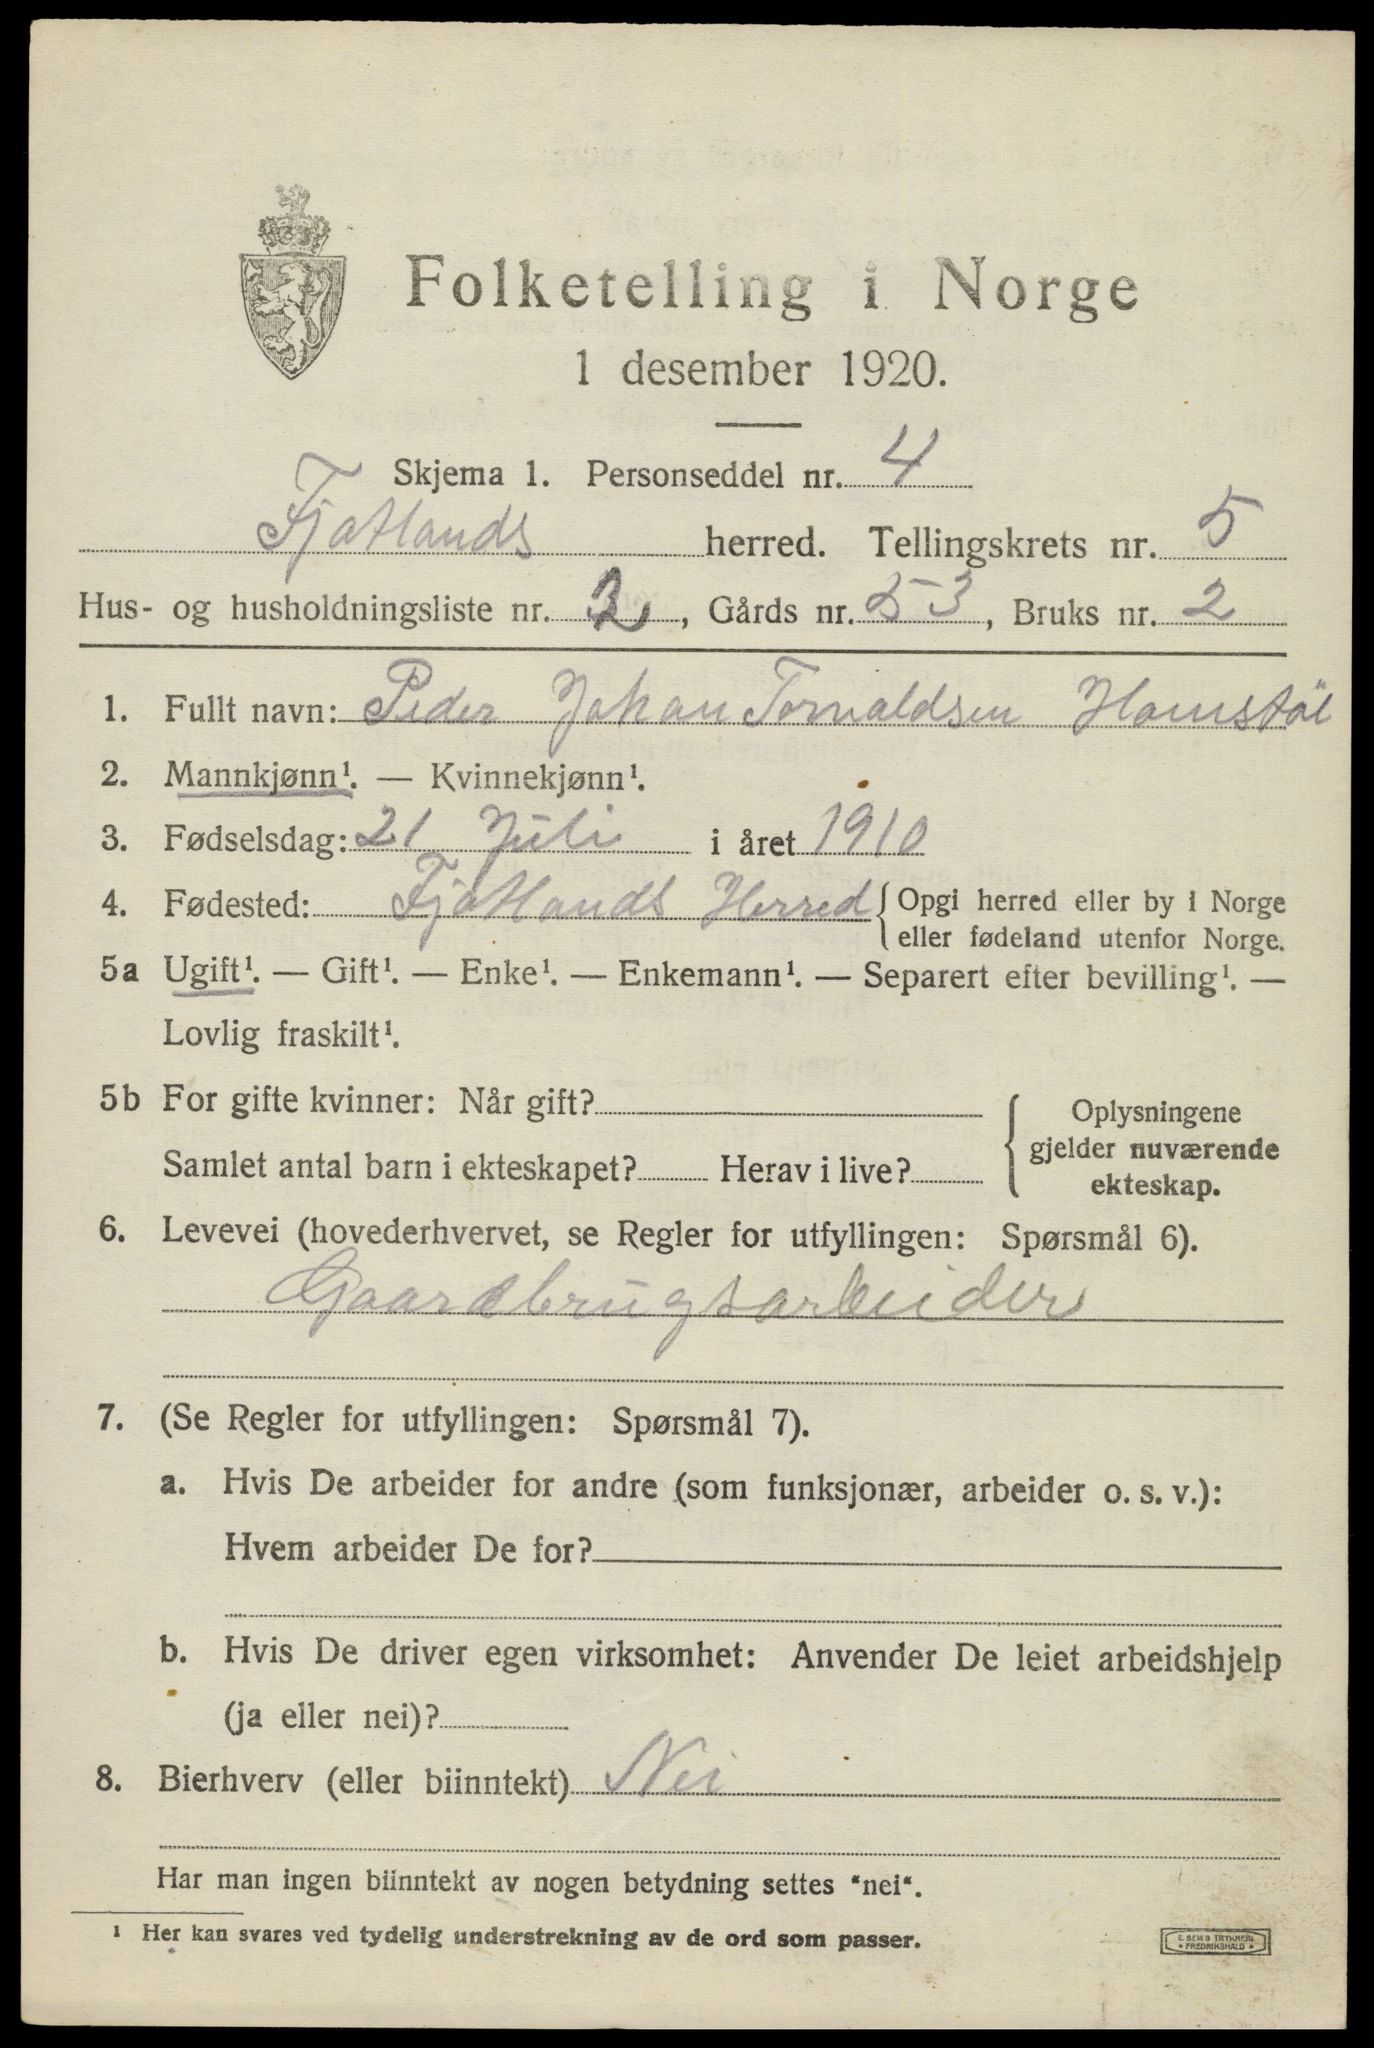 Folketelling i Norge
1 desember 1920.
Skjema 1. Personseddel nr. 4
Fjotlands herred. Tellingskrets nr. 5
Hus- og husholdningsliste nr. 2, Gårds nr. 53, Bruks nr. 2
1. Fullt navn: Peder Johan Torvaldsen Homstøl
2. Mannkjønn¹. — Kvinnekjønn¹.
3. Fødselsdag: 21 Juli i året 1910
4. Fødested: Fjotlands Herred { Opgi herred eller by i Norge
eller fødeland utenfor Norge.
5a Ugift¹. — Gift¹. — Enke¹. — Enkemann¹. — Separert efter bevilling¹. —
Lovlig fraskilt¹.
5b For gifte kvinner: Når gift?
Samlet antal barn i ekteskapet? Herav i live?
{ Oplysningene
gjelder nuværende
ekteskap.
6. Levevei (hovederhvervet, se Regler for utfyllingen: Spørsmål 6).
Gaardbrugsarbeider
7. (Se Regler for utfyllingen: Spørsmål 7).
a. Hvis De arbeider for andre (som funksjonær, arbeider o. s. v.):
Hvem arbeider De for?
b. Hvis De driver egen virksomhet: Anvender De leiet arbeidshjelp
(ja eller nei)?
8. Bierhverv (eller biinntekt) Nei
Har man ingen biinntekt av nogen betydning settes "nei".
¹ Her kan svares ved tydelig understrekning av de ord som passer.
E. SEM'S TRYKKERI
* FREDRIKSHALD *